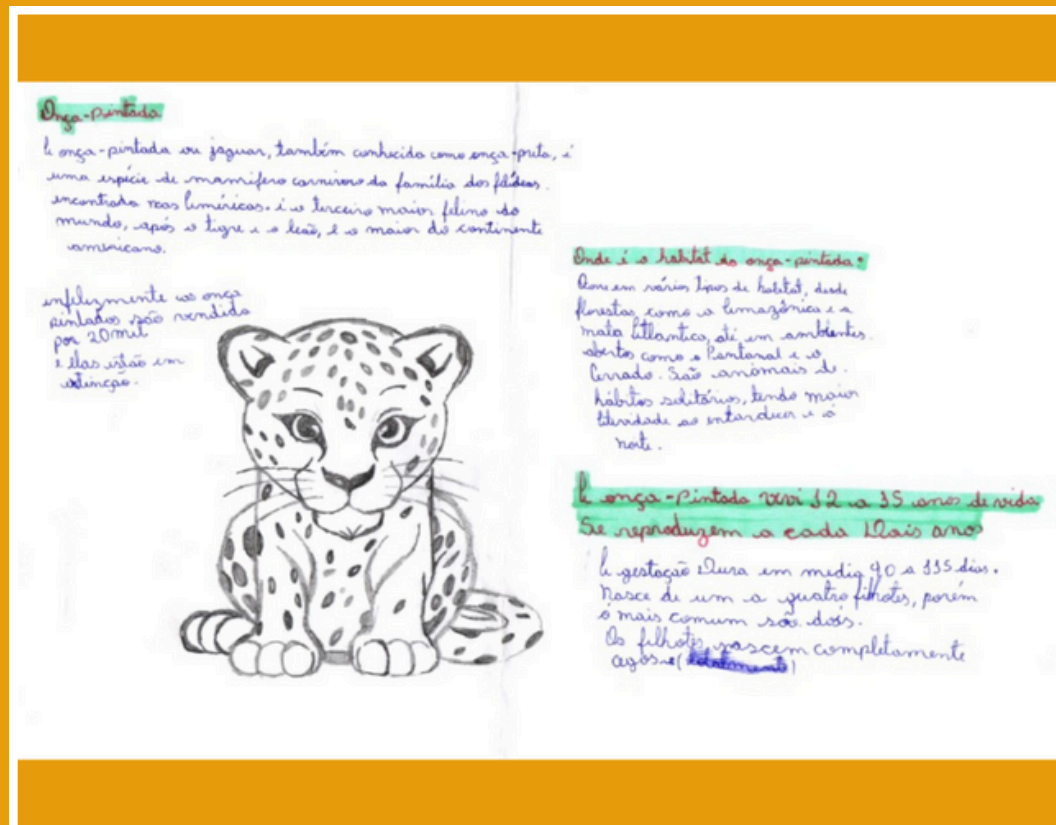 Onça-Pintada
A onça-pintada ou jaguar, também conhecido como onça-preta, é
uma espécie de mamífero carnívoro da família dos felídeos.
encontrada nas Américas. é o terceiro maior felino do
mundo, após o tigre e o leão, e o maior do continente
americano.
infelizmente as onça
pintados são vendida
por 20 mil
e elas estão em
extinção.
Onde é o habitat da onça-pintada:
em vários tipos de habitat, desde
florestas, como a Amazônica e a
mata Atlantica, até em ambientes.
abertos como o Pantanal e o
Cerrado. São animais de.
hábitos solitários, tendo maior
atividade ao entardecer e à
noite.
A onça-Pintada vivi 12 a 15 anos de vida
Se reproduzem a cada Dois ano
A gestação Dura em media 90 a 115 dias.
Nasce de um a quatro filhotes, porém
o mais comum são dois.
Os filhotes nascem completamente